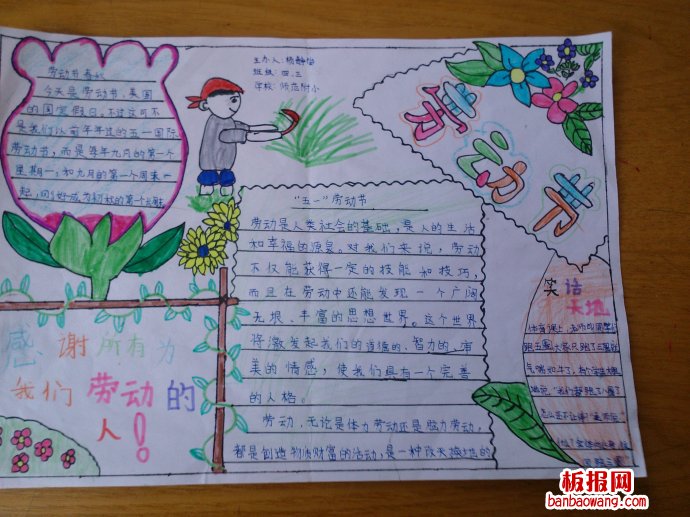 劳动节
主办人:杨静怡
班级:四.三
学校:师范附小
劳动节
今天是劳动节,美国
的国定假日。不过这可不
是我们以前年年过的五一国际
劳动节,而是每年九月的第一个
星期一,和九月的第一个周末一
起,
"五一"劳动节
劳动是人类社会的基础,是人的生活
和幸福的源泉。对我们来说,劳动
不仅能获得一定的技能和技巧,
而且在劳动中还能发现一个广阔
无垠、丰富的思想世界。这个世界
将激发起我们的道德的、智力的、审
美的情感,使我们具有一个完善
的人格。
劳动,无论是体力劳动还是脑力劳动,
都是创造物质财富的活动,是一种改天换地的
感谢所有为
我们劳动的
人!
笑话
天地
体育课上,老师说同学们
板报网
banbaowang.com